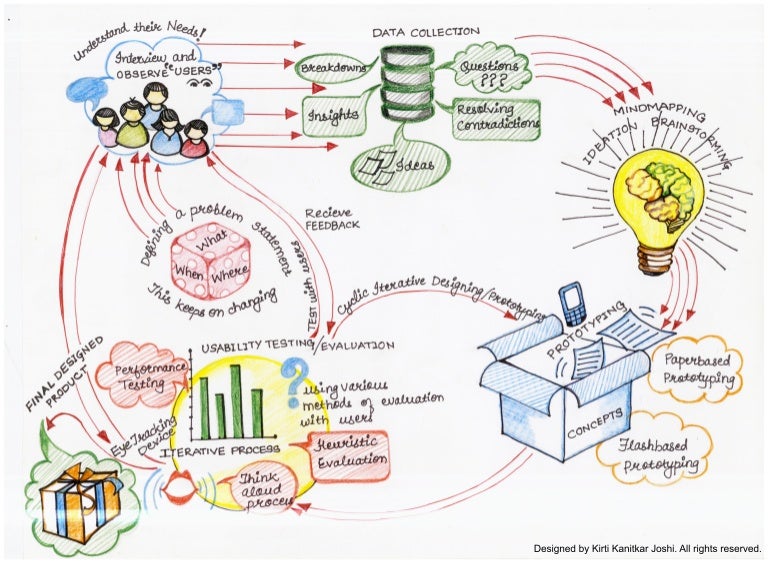 Understand their Needs!
Interview and
OBSERVE "USERS"
DATA COLLECTION
Breakdowns
Questions
???
Insights
Resolving
Contradictions
Ideas
MINDMAPPING
IDEATION BRAINSTORMING
Defining a problem statement
What
When
Where
This keeps on changing
RECIEVE
FEEDBACK
TEST with users
Cyclic Iterative Designing/Prototyping
PROTOTYPING
CONCEPTS
Paperbased
Prototyping
Flashbased
Prototyping
USABILITY TESTING/EVALUATION
Performance
Testing
?
using various
methods of evaluation
with users
ITERATIVE PROCESS
Heuristic
Evaluation
Think
aloud
process
EyeTracking
Device
FINAL DESIGNED
PRODUCT
Designed by Kirti Kanitkar Joshi. All rights reserved.